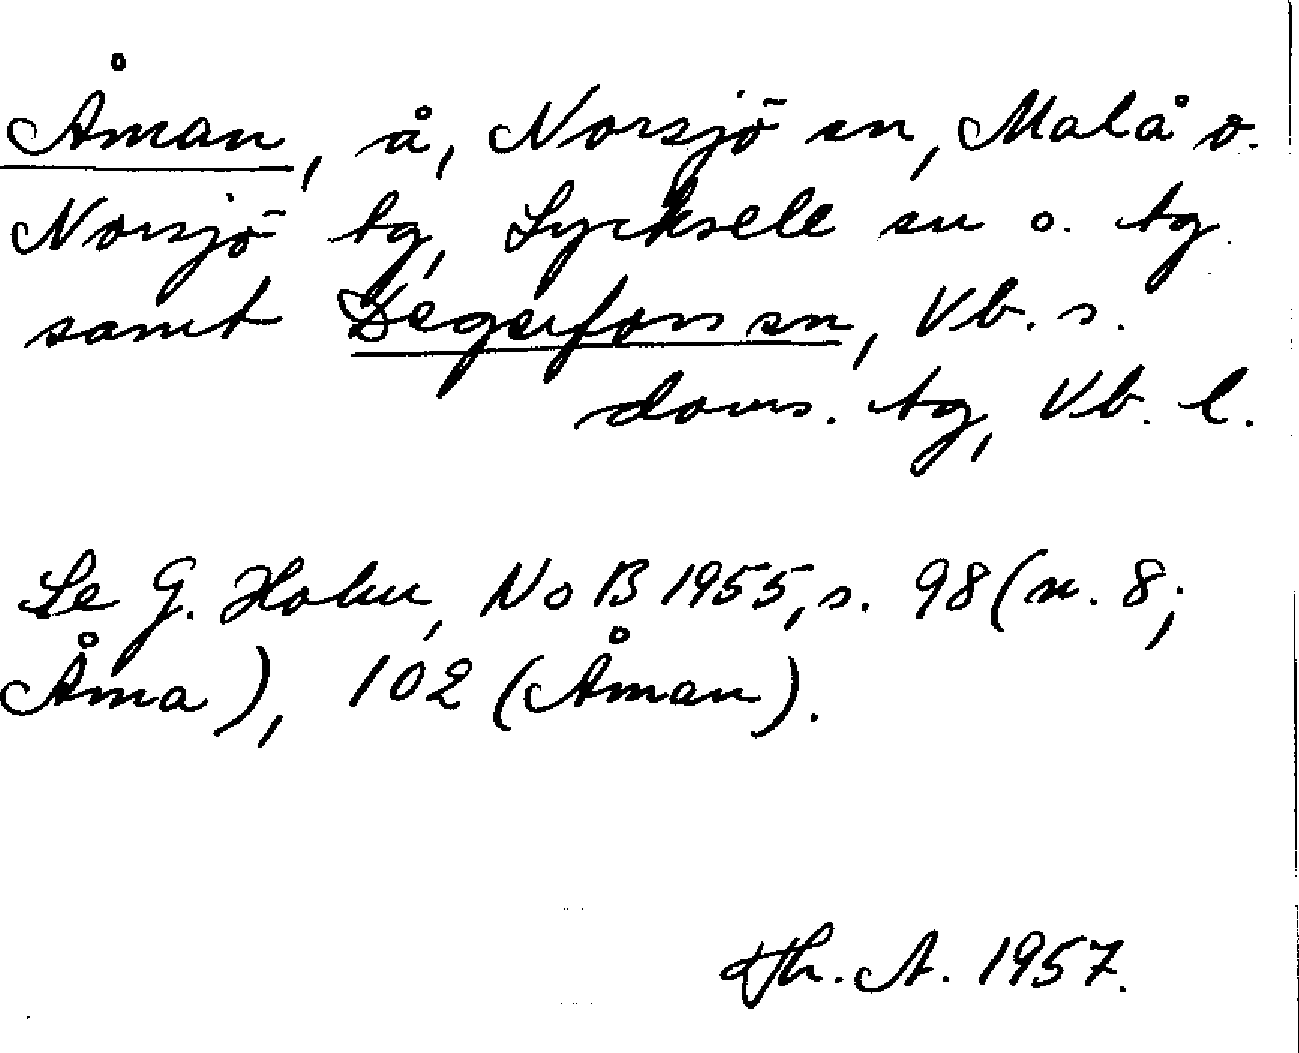 Åman, å, Norsjö sn, Malå o.
Norsjö tg, Lycksele sn o. tg
samt Degerfors sn, Vb. s.
doms. tg, Vb. l.
Se G. Holm, NoB 1955, s. 98 (n. 8;
Åma), 102 (Åman).
Th. A. 1957.